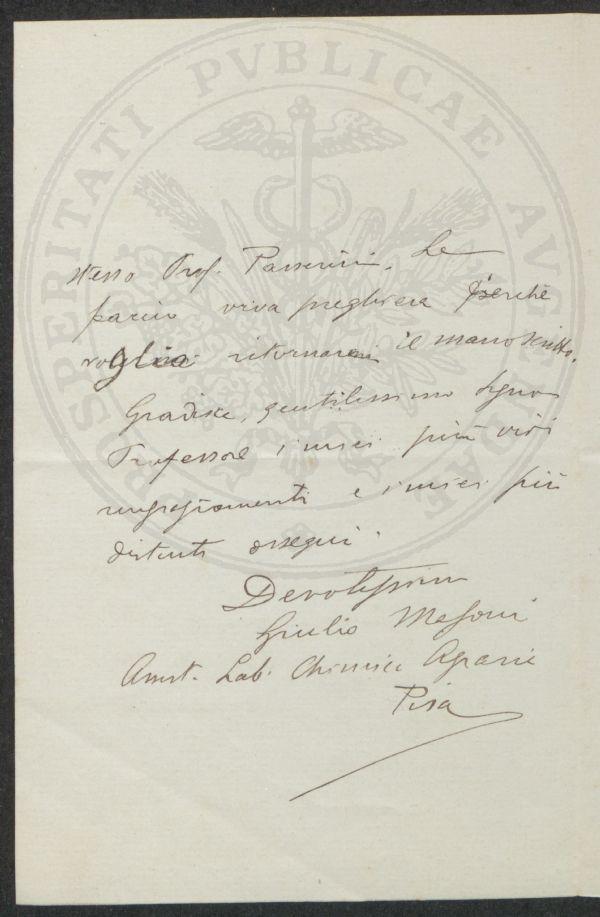 PROSPERITATI PVBLICAE AVGENDAE
stesso Prof. Passerini. Le
faccio viva preghiera perchè
voglia ritornarmi il manoscritto.
Gradisca, gentilissimo Signor
Professore i miei più vivi
ringraziamenti e i miei più
distinti ossequi.
Devotissimo
Giulio Masoni
Assist. Lab. Chimica Agraria
Pisa